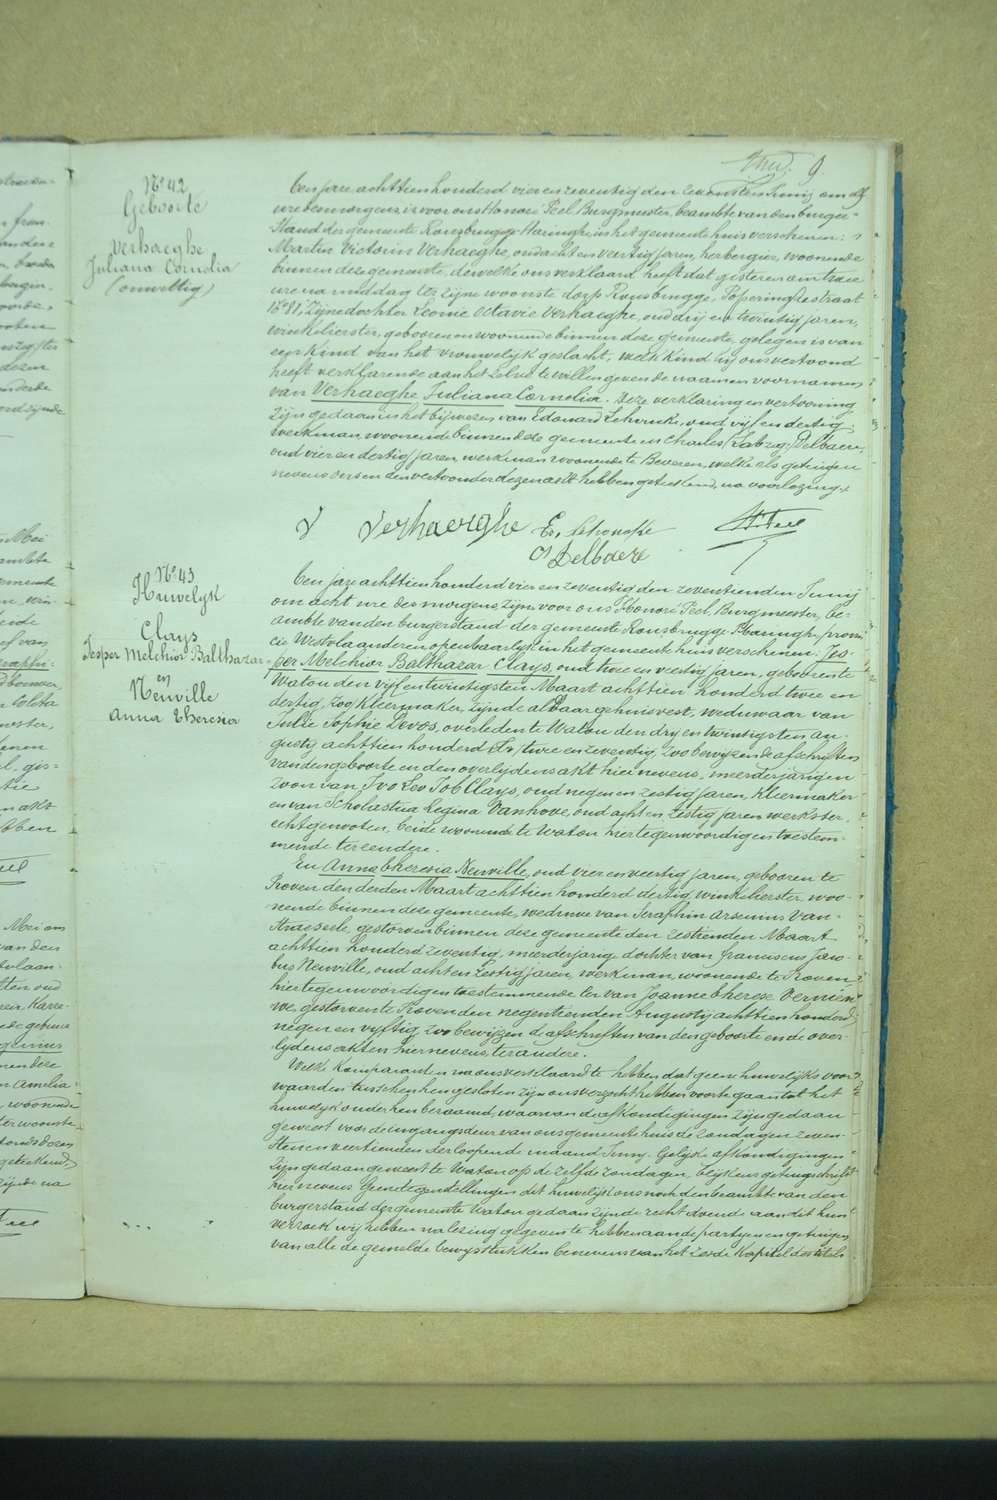 9
N° 42
Geboorte
Verhaeghe
Juliana Cornelia
(onwettig)
Een jare achttien honderd vier en zeventig den Junij om elf
ure des morgens, is voor ons Honoré Peel Burgmeester, beambte van den burger-
stand der gemeente Rousbrugge-Haringhe in het gemeente huis verschenen:
Martin Victorin Verhaeghe, oud acht en veertig jaren, herbergier, woonende
binnen deze gemeente, dewelke ons verklaard heeft dat gisteren om twee
ure na middag ter zijne woonste dorp Rousbrugge, Poperinghestraat
N° 81, zijne dochter Leonie Octavie Verhaeghe, oud drij en twintig jaren,
winkelierster, gebooren en woonende binnen deze gemeente, gelegen is van
een kind van het vrouwelijk geslacht, welk kind hij ons vertoond
heeft verklarende aan het zelve te willen geven de naam en voornamen
van Verhaeghe Juliana Cornelia. Deze verklaring en vertooning
zijn gedaan in het bijwezen van Edouard oud vijf en dertig
werkman, woonende binnen deze gemeente en Charles Delbaere,
oud vier en dertig jaren, werkman woonende te Beveren, welke als getuigen
nevens ons en den vertoonder dezen akt hebben geteekend, na voorlezing.
V Verhaeghe Ed.
Delbaere
H. Peel
N° 43
Huwelyk
Clays
Jesper Melchior Balthazar
en
Neuville
Anna Theresia
Een jare achttien honderd vier en zeventig den zeventienden Junij
om acht ure des morgens, zijn voor ons Honoré Peel, Burgmeester, be-
ambte van den burgerstand der gemeente Rousbrugge-Haringhe, provin-
cie Westvlaanderen openbaarlijk in het gemeente huis verschenen: Jes-
per Melchior Balthazar Clays, oud twee en veertig jaren, geboren te
Watou den vijf en twintigsten Maart achttien honderd twee en
dertig, zoo kleermaker, zijnde aldaar gehuisvest, weduwaar van
Julie Sophie Devos, overleden te Watou den dry en twintigsten au-
gusty achttien honderd twee en zeventig, zoo bewijzen de afschriften
van den geboorte en den overlijdens akt hier nevens, meerderjarigen
zoon van Ivo Leo Job Clays, oud negen en zestig jaren, kleermaker
en van Scholastica Regina Vanhove, oud acht en zestig jaren werkster,
echtgenooten, beide woonende te Watou hier tegenwoordig en toestem-
mende ter eendere.
En Anna Theresia Neuville, oud vier en veertig jaren, gebooren te
Proven den derden Maart achttien honderd dertig, winkelierster, woo-
nende binnen deze gemeente, weduwe van Seraphin Arsenius Van-
straeseele, gestorven binnen deze gemeente den zestienden Maart
achttien honderd zeventig, meerderjarig dochter van Franciscus Jaco-
bus Neuville, oud acht en zestig jaren, werkman, woonende te Proven
hier tegenwoordig en toestemmende ter van Joanne Therese
gestorven te Proven den negentienden Augusty achttien honderd
negen en vyftig, zoo bewijzen de afschriften van den geboorte en de over-
lijdens akten hier nevens, ter andere.
Welke komparanten na ons verklaard te hebben dat geene huwelijks voor-
waarden tusschen hen gesloten zijn ons verzocht hebben voorts gaan tot het
huwelijk onder hen beraamd, waarvan de afkondigingen zijn gedaan
geweest voor de ingangsdeur van ons gemeente huis de zondagen zeven-
sten en veertienden der loopende maand Juny. Gelijke afkondigingen
zijn gedaan geweest te Watou op de zelfde zondagen, blijkens getuigschrift
hier nevens. Geene tegenstellingen dit huwelijk ons noch den beambte van den
burgerstand der gemeente Watou gedaan zijnde recht doende aan dit hun
verzoek wij hebben na lezing gegeven te hebben aan de partyen en getuigen
van alle de gemelde bewijsstukken benevens van het zesde Kapittel des titels